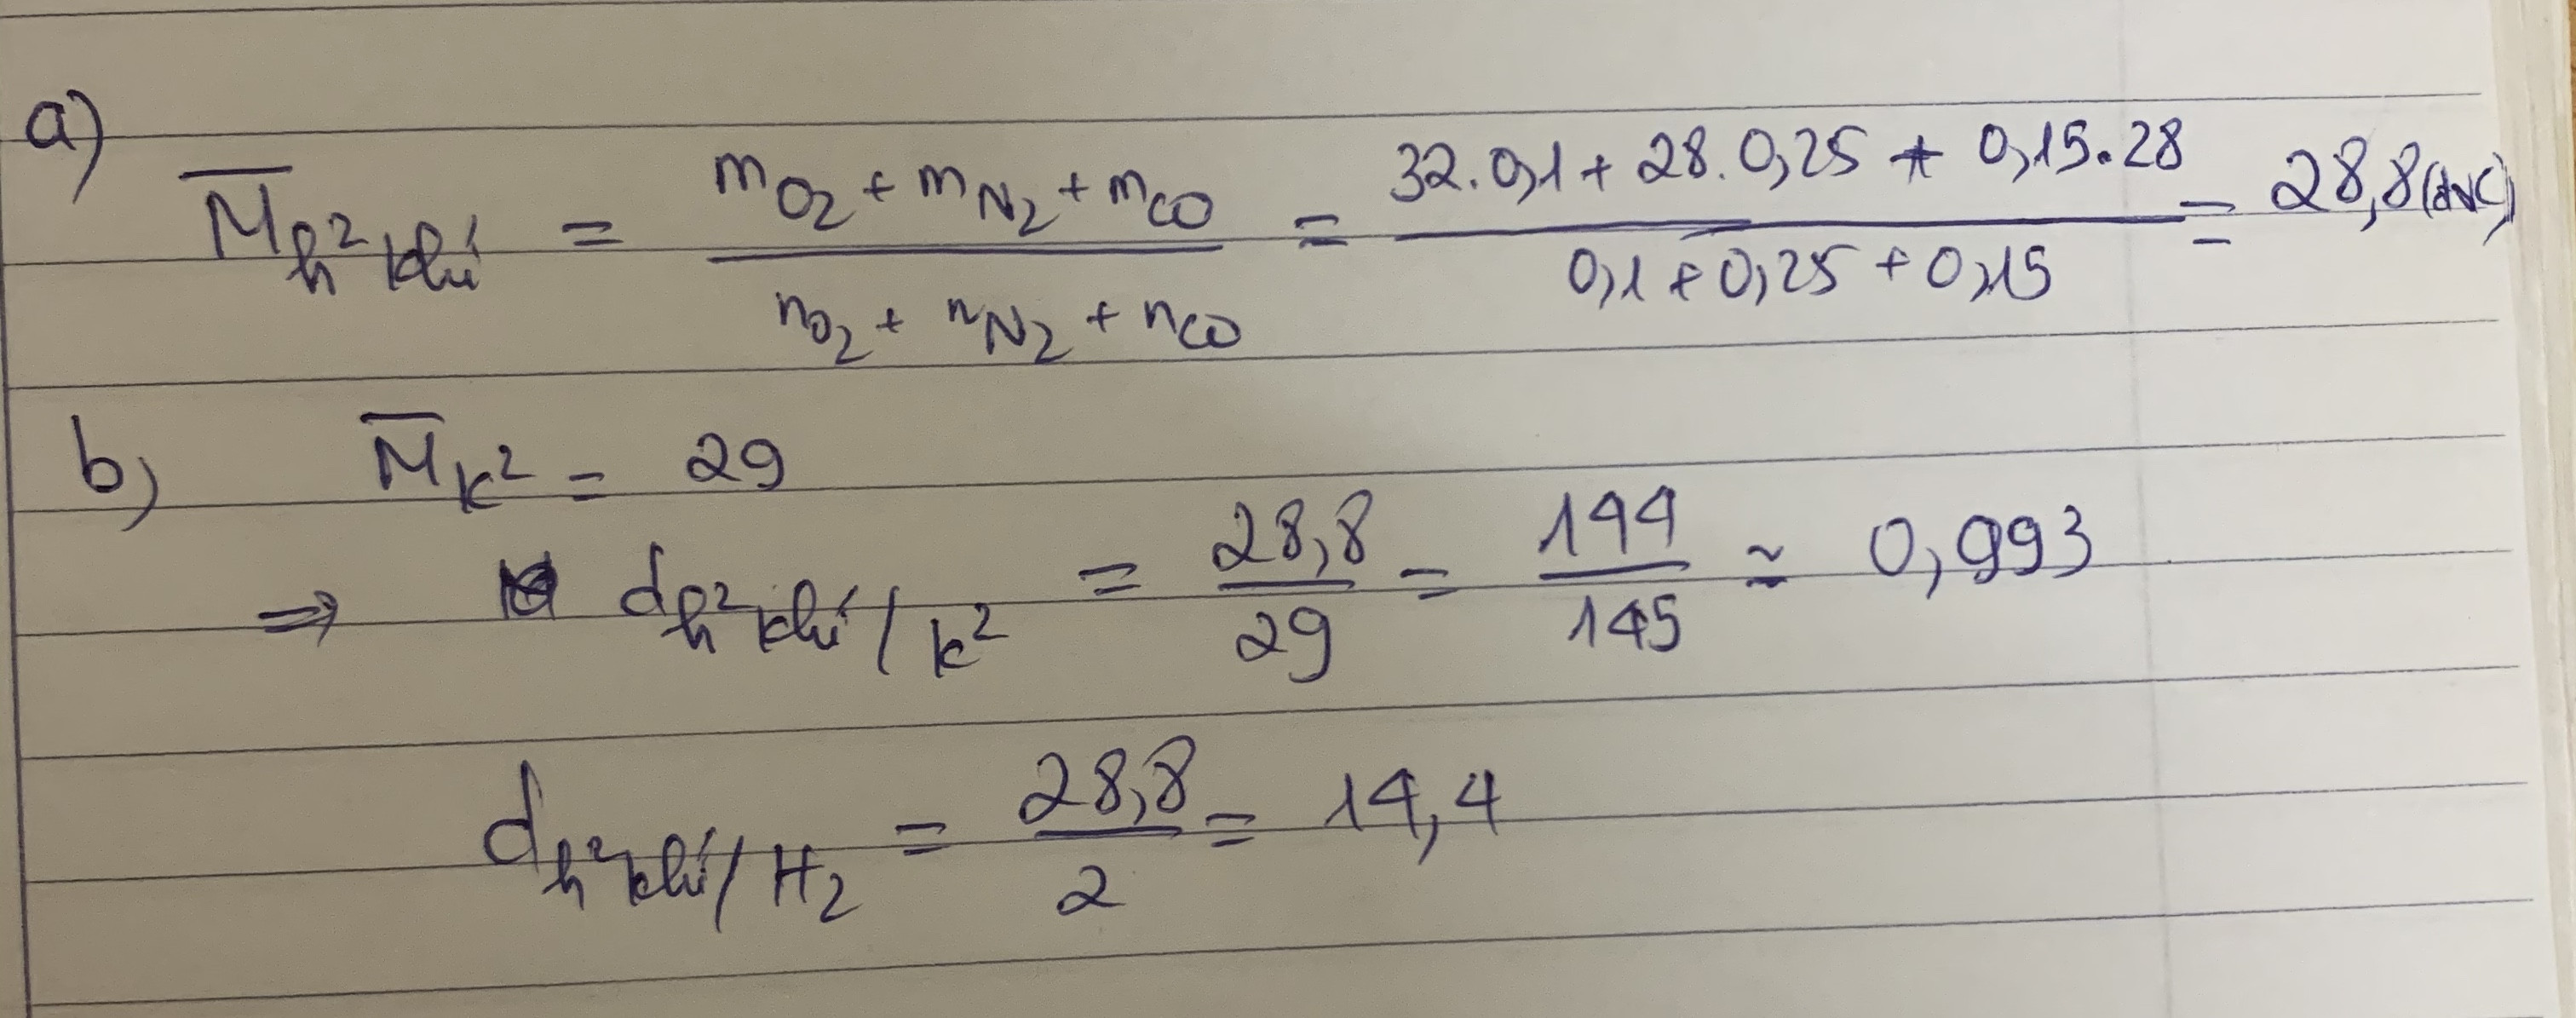 a)
M̅ₕ² ₖₕí = (m_O₂ + m_N₂ + m_CO) / (n_O₂ + n_N₂ + n_CO) = (32.0,1 + 28.0,25 + 0,15.28) / (0,1 + 0,25 + 0,15) = 28,8 (đvC)
b) M̅ₖ² = 29
⇒ d h² khí / k² = 28,8 / 29 = 144 / 145 ≃ 0,993
d h² khí / H₂ = 28,8 / 2 = 14,4